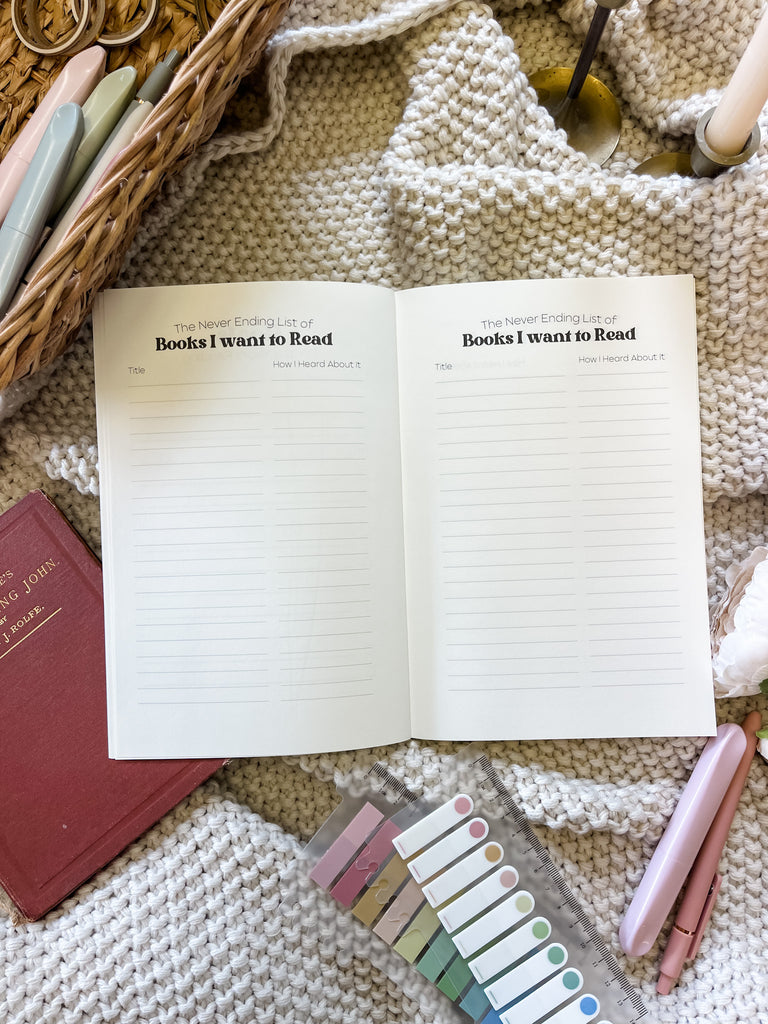 The Never Ending List of
Books I want to Read
Title
How I Heard About It
The Never Ending List of
Books I want to Read
Title
How I Heard About It
NG JOHN.
J. ROLFE.